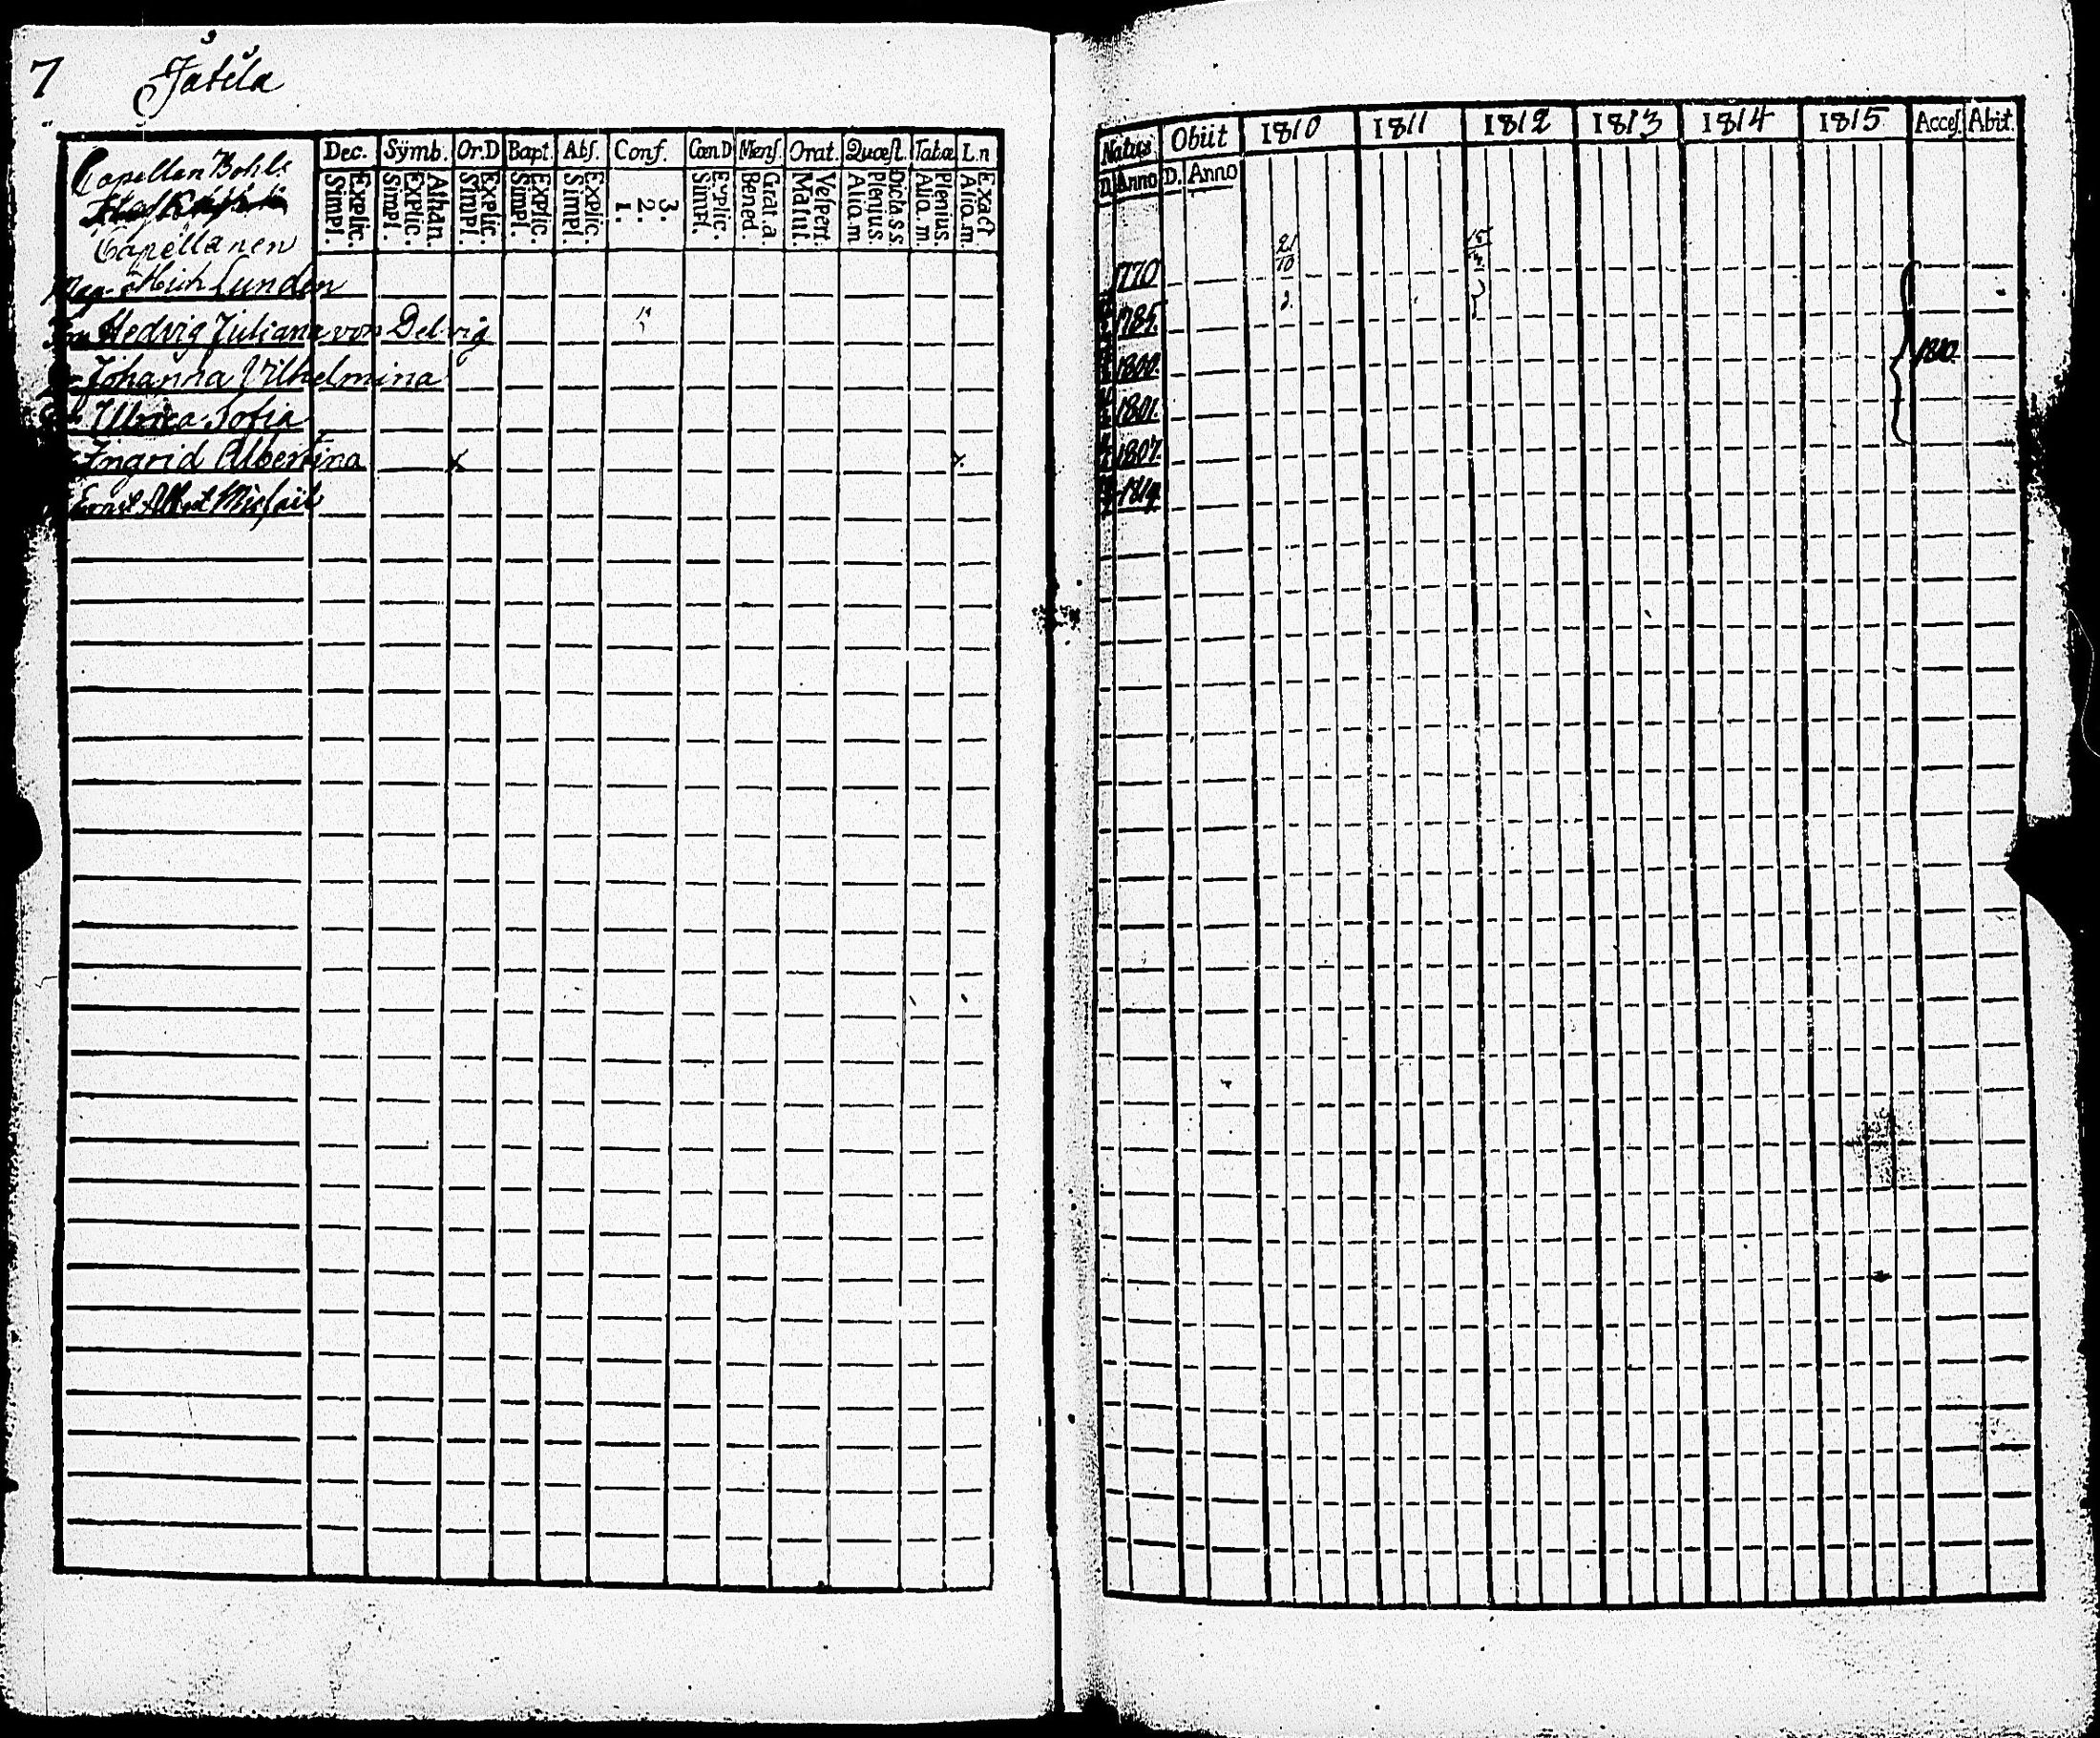 7 Jåtila
Dec. Sÿmb. Or.D Bapt. Abſ. Conf. Cœn.D Menſ. Orat. Quæſt. Tabæ L.n
Explic. Simpl. Athan. Explic. Simpl. Explic. Simpl. Explic. Simpl. Explic. Simpl. 3. 2. 1. Explic. Simpl. Grat.a. Bened. Veſpert. Matut. Dicta.s.s. Plenius Alio.m Plenius. Alio.m. Exact Alio.m.
Capellan Bohls
Capellanen
Mag. Lunden
Hedvig Juliana von Delvig
Johanna Vilhelmina
Ulrica Sofia
Ingrid Albertina
Ernst Albert
Natus Obiit 1810 1811 1812 1813 1814 1815 Acceſ. Abiit.
D. Anno D. Anno
21/10
1770
1785.
1800. 1810.
1801.
1807.